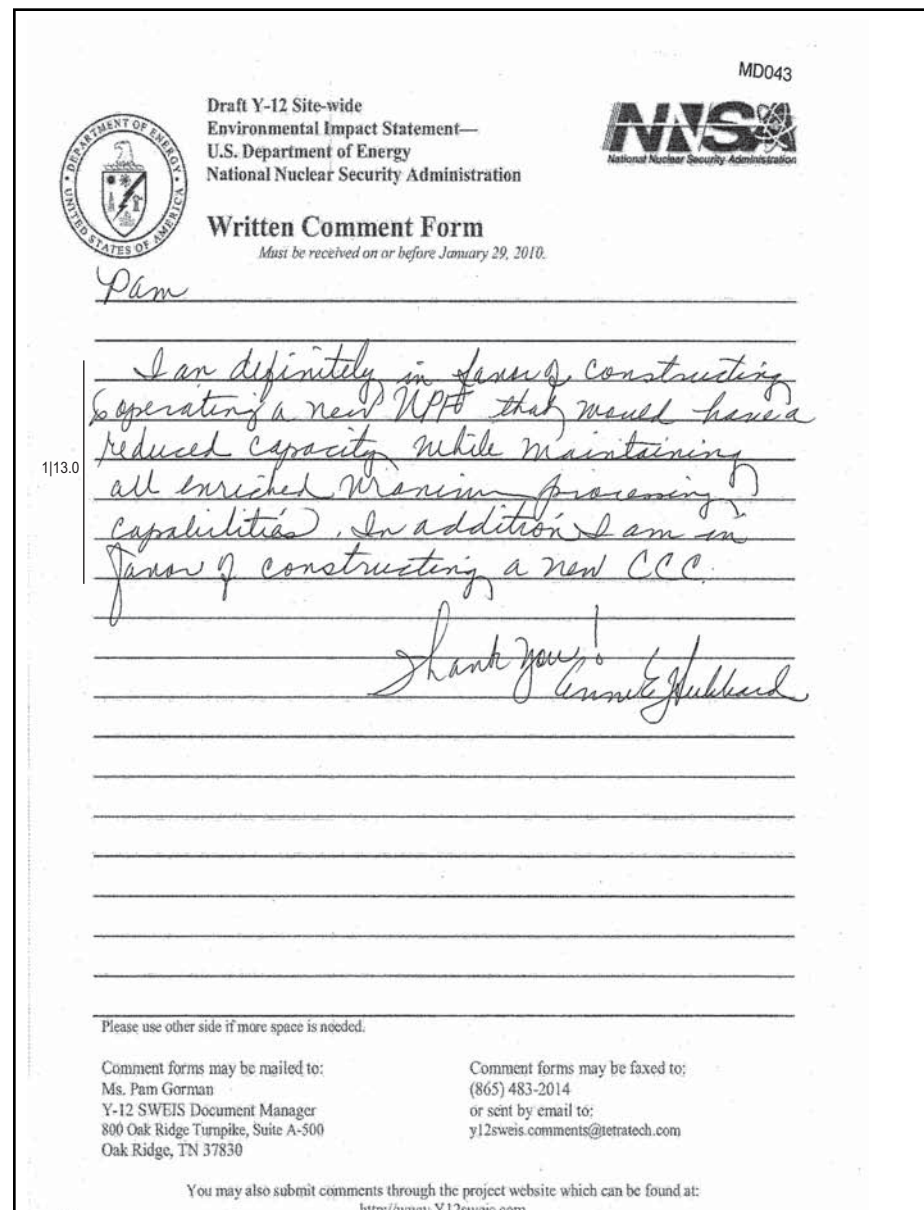 MD043
Draft Y-12 Site-wide
Environmental Impact Statement—
U.S. Department of Energy
National Nuclear Security Administration
DEPARTMENT OF ENERGY
UNITED STATES OF AMERICA
NNSA
National Nuclear Security Administration
Written Comment Form
Must be received on or before January 29, 2010.
Pam
I an definitely in favor of constructing
& operating a new UPF that would have a
reduced capacity while maintaining
1|13.0
all enriched uranium processing
capabilities. In addition I am in
favor of constructing a new CCC.
Thank you!
Annie E Hubbard
Please use other side if more space is needed.
Comment forms may be mailed to:
Ms. Pam Gorman
Y-12 SWEIS Document Manager
800 Oak Ridge Turnpike, Suite A-500
Oak Ridge, TN 37830
Comment forms may be faxed to:
(865) 483-2014
or sent by email to:
y12sweis.comments@tetratech.com
You may also submit comments through the project website which can be found at:
http://www.Y12sweis.com